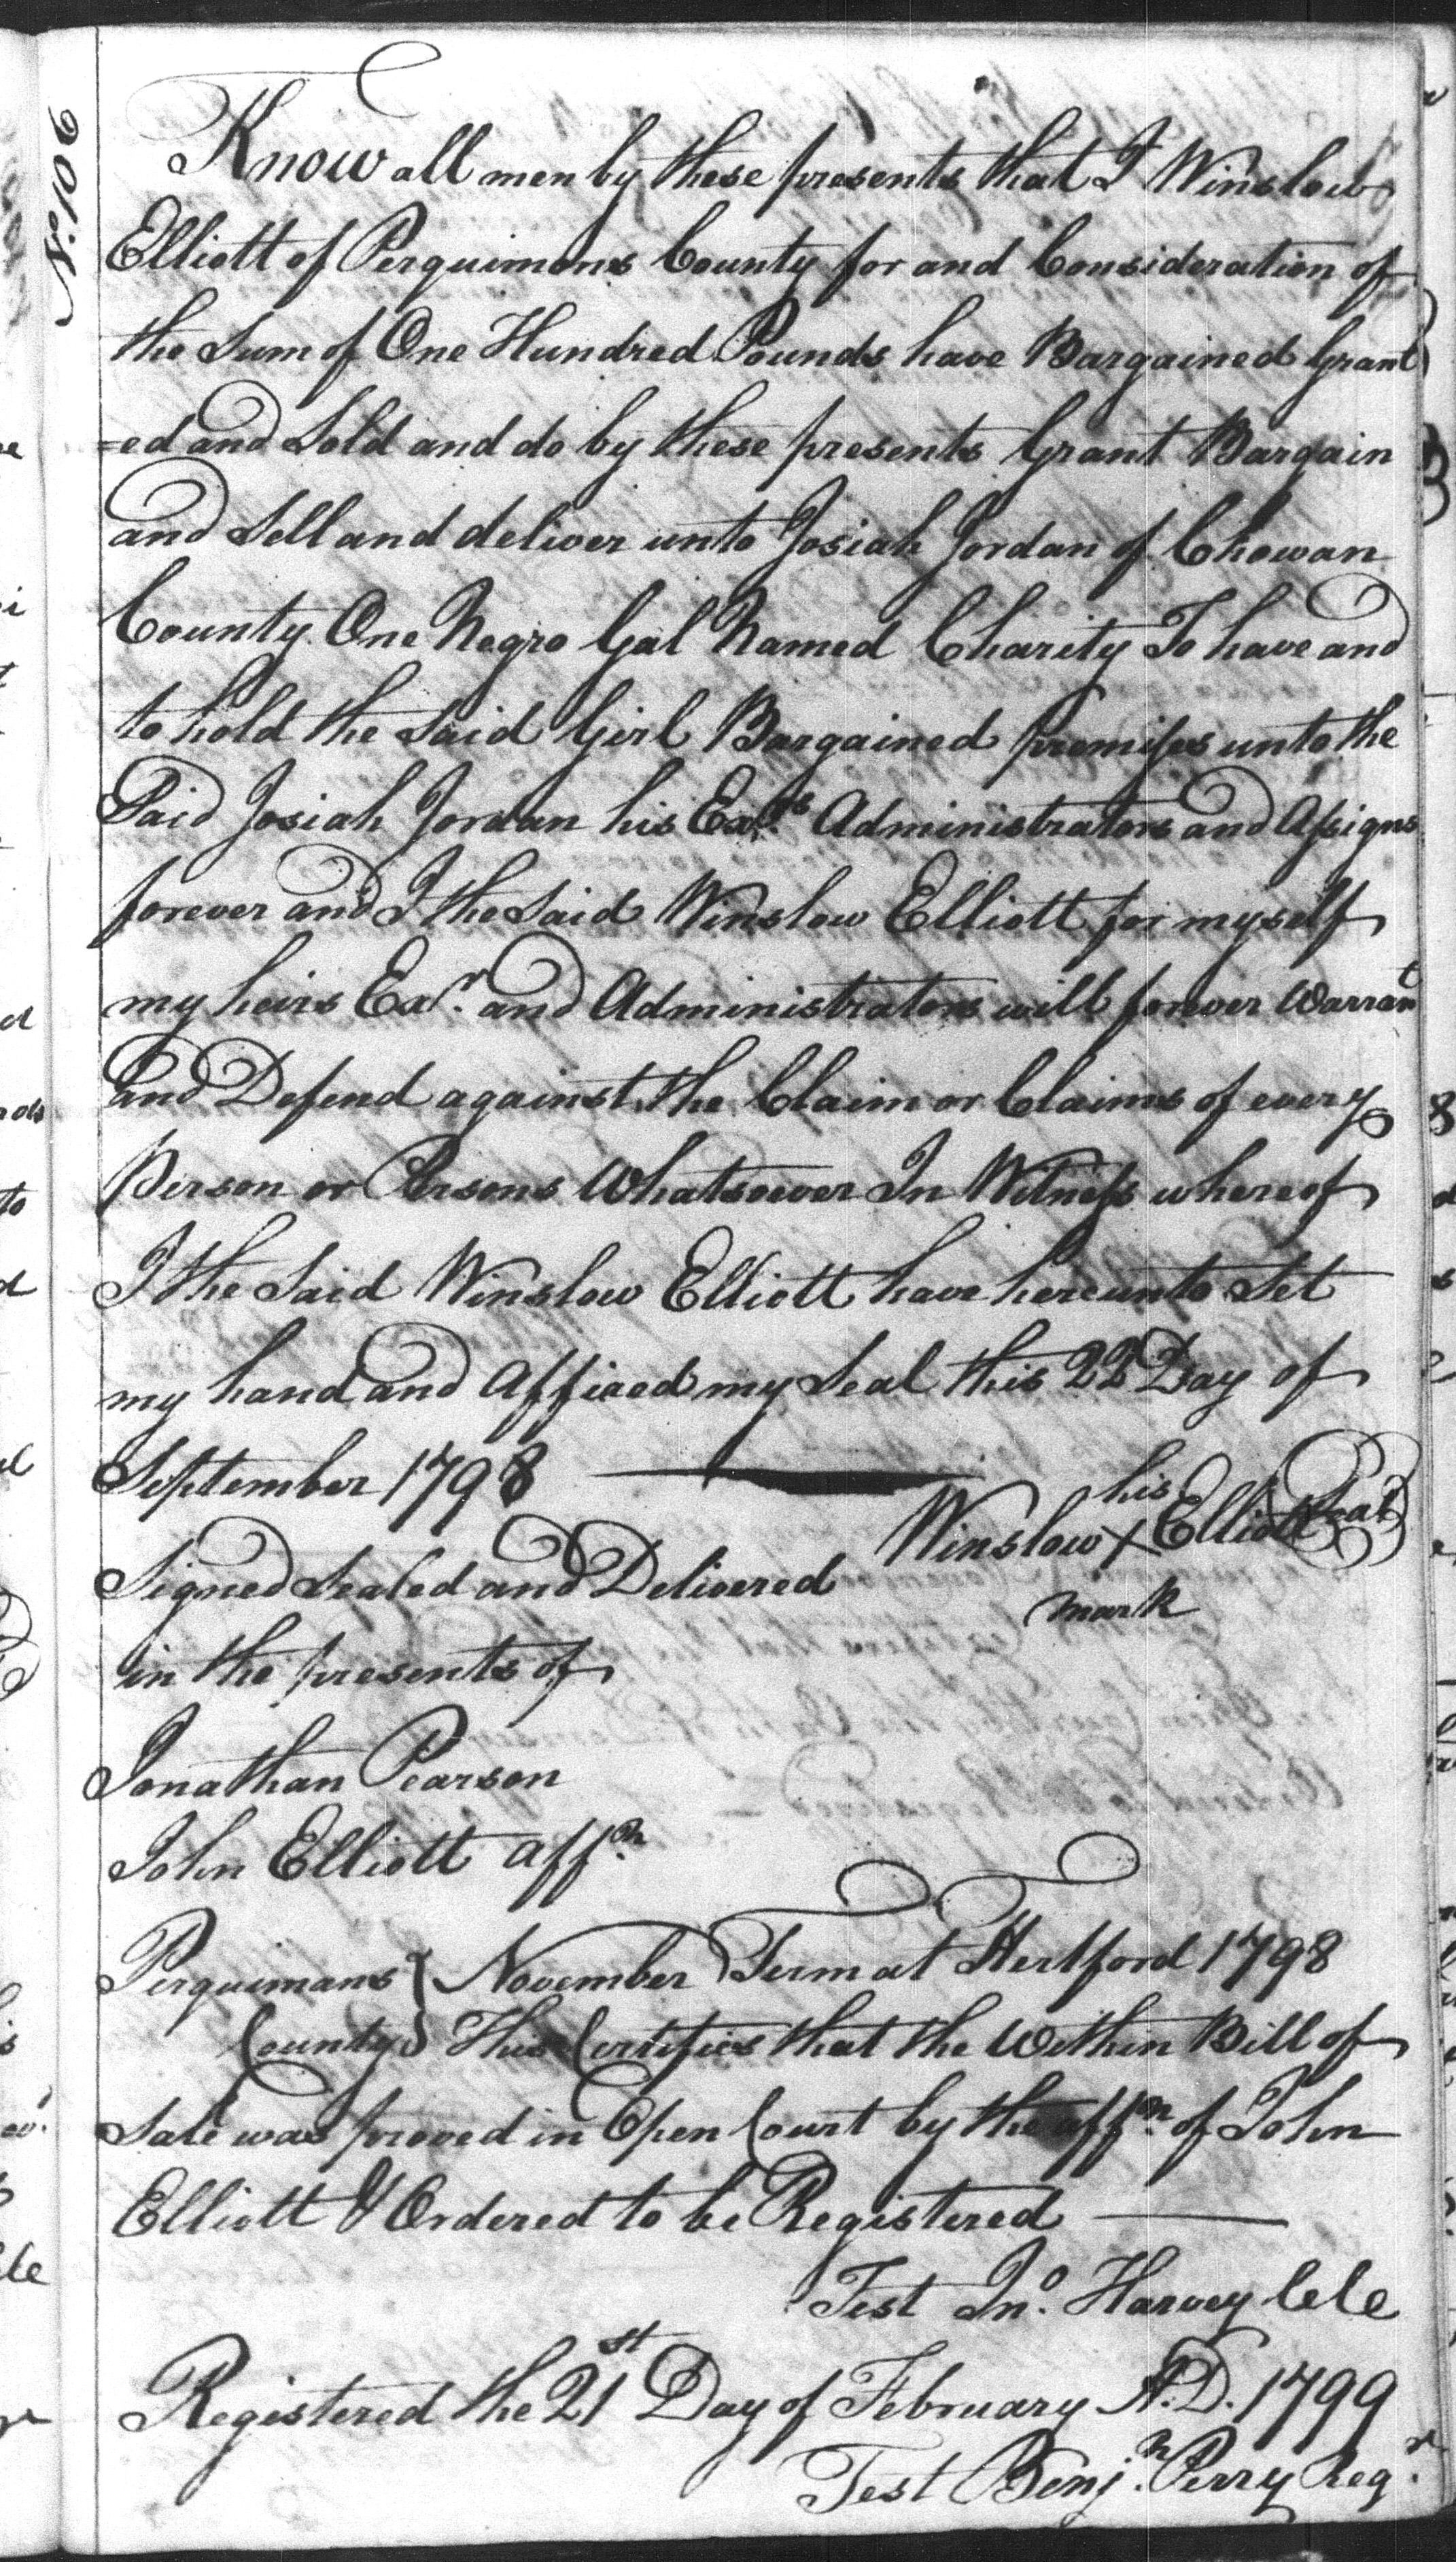 No. 106
Know all men by these presents that I Winslow
Elliott of Perquimons County for and Consideration of
the Sum of One Hundred Pounds have Bargained Grant
=ed and Sold and do by these presents Grant Bargain
and Sell and deliver unto Josiah Jordan of Chowan
County One Negro Gal Named Charity To have and
to hold the Said Girl Bargained premises unto the
Said Josiah Jordan his Exrs Administrators and Assigns
forever and I the Said Winslow Elliott for myself
my heirs Exr. and Administrators will forever Warrant
and Defend against the Claim or Claims of every
Person or Persons Whatsoever In Witness whereof
I the Said Winslow Elliott have hereunto Set
my hand and Affixed my Seal this 22 Day of
September 1798
his
Winslow X Elliott Seal
mark
Signed Sealed and Delivered
in the presents of
Jonathan Pearson
John Elliott affn.
Perquimans } November Term at Hertford 1798
County } This Certifies that the Within Bill of
Sale was proved in Open Court by the affn. of John
Elliott & Ordered to be Registered
Test Jno. Harvey Clc
Registered the 21st Day of February A.D. 1799
Test Benjn. Perry Regr.